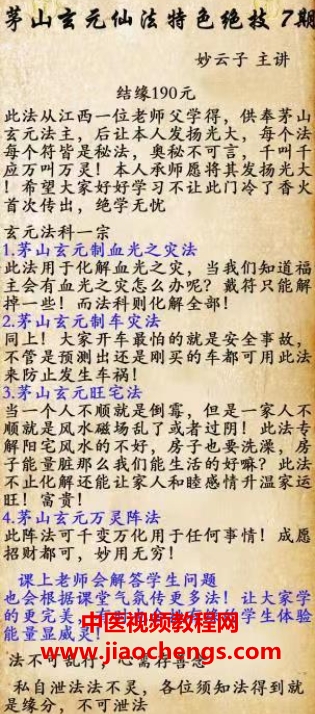 茅山玄元仙法特色绝技7期
妙云子 主讲
结缘190元
此法从江西一位老师父学得，供奉茅山
玄元法主，后让本人发扬光大，每个法
每个符皆是秘法，奥秘不可言，千叫千
应万叫万灵！本人承师愿将其发扬光大
！希望大家好好学习不让此门冷了香火
首次传出，绝学无忧
玄元法科一宗
1.茅山玄元制血光之灾法
此法用于化解血光之灾，当我们知道福
主会有血光之灾怎么办呢？戴符只能解
掉一些！而法科则化解全部！
2.茅山玄元制车灾法
同上！大家开车最怕的就是安全事故，
不管是预测出还是刚买的车都可用此法
来防止发生车祸！
3.茅山玄元旺宅法
当一个人不顺就是倒霉，但是一家人不
顺就是风水磁场乱了或者过阴！此法专
解阳宅风水的不好，房子也要洗澡，房
子能量脏那么我们能生活的好嘛？此法
不止化解还能让家人和睦感情升温家运
旺！富贵！
4.茅山玄元万灵阵法
此阵法可千变万化用于任何事情！成愿
招财都可，妙用无穷！
课上老师会解答学生问题
也会根据课堂气氛传更多法！让大家学
的更完美，学生体验
能量显威灵！
中医视频教程网
www.jiaochengs.com
法不可乱行，心需存善念
私自泄法法不灵，各位须知法得到就
是缘分，不可泄法